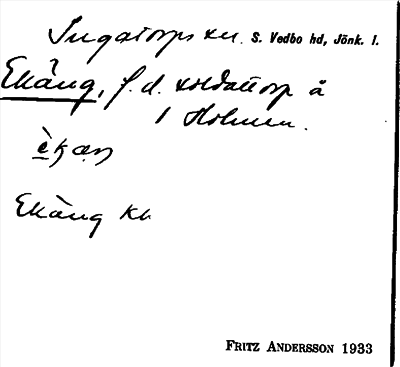 Ingatorps sn. S. Vedbo hd, Jönk. l.
Ekäng, f.d. soldattorp å
1 Holmen.
èkæŋ
Ekäng kb
FRITZ ANDERSSON 1933